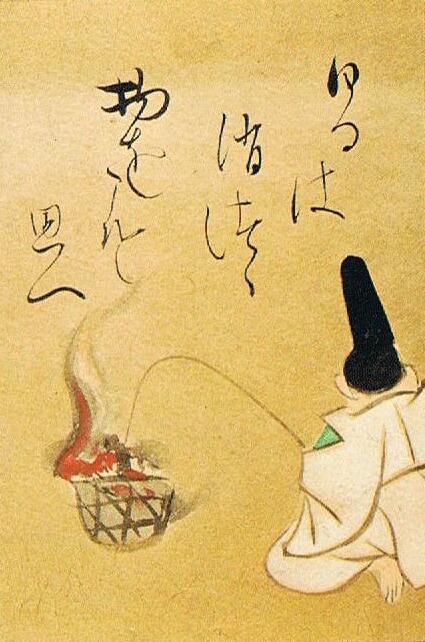 ひるは
消つゝ
物をこそ
思へ